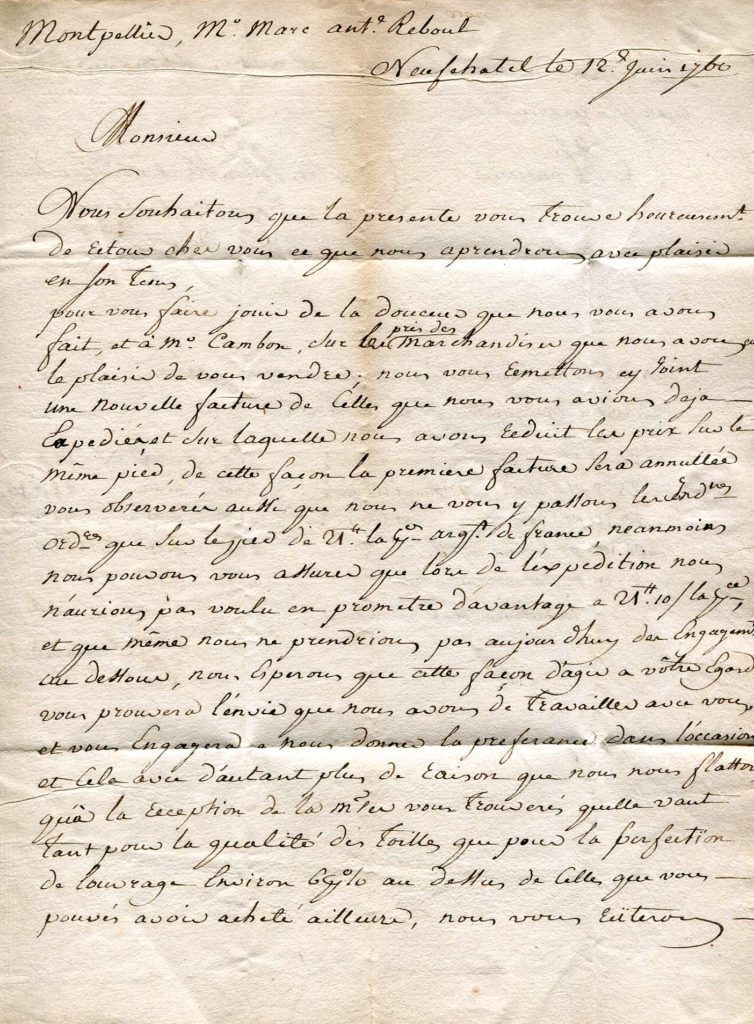 Montpellier, Mr. Marc ant.e Reboul
Neufchatel le 12.e Juin 1760
Monsieur
Nous Souhaitons que la presente vous trouve heureusemt.
de retour chez vous ce que nous aprendrons avec plaisir
en son tems,
pour vous faire jouir de la douceur que nous vous avons
fait, et à Mr. Cambon, sur les prix des Marchandises que nous avons eu
le plaisir de vous vendre; nous vous remettons cy joint
une nouvelle facture de Celles que nous vous avions deja
Expediées et sur laquelle nous avons reduit les prix sur le
même pied, de cette façon la premiere facture sera annullée
vous observerés aussi que nous ne vous y passons les
ordres que sur le pied de la argt. de france, neanmoins
nous pouvons vous assurer que lors de l'expedition nous
n'aurions pas voulu en prometre d'avantage a
et que même nous ne prendrions pas aujourdhuy des Engagemts
au dessous, nous Esperons que cette façon d'agir a vôtre Egard
vous prouvera l'envie que nous avons de travailler avec vous
et vous Engagera a nous donner la preferance dans l'occasion
et Cela avec d'autant plus de raison que nous nous flattons
qu'à la reception de la vous trouverés quelle vaut
tant pour la qualité des Toilles que pour la perfection
de louvrage Environ au dessus de Celles que vous
pouvés avoir acheté ailleurs, nous vous reïterons